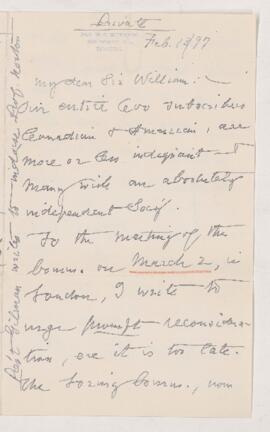 Private
Feb. 13/97
My dear Sir William:—
Our entire 600 subscribers
Canadian & American, are
more or less indignant &
many wish an absolutely
independent Socy.
To the meeting of the
Comm. on March 2, in
London, I write to
urge prompt reconsidera-
tion, ere it is too late.
The Comm., now
Prest Gilman writes to Prof. Norton